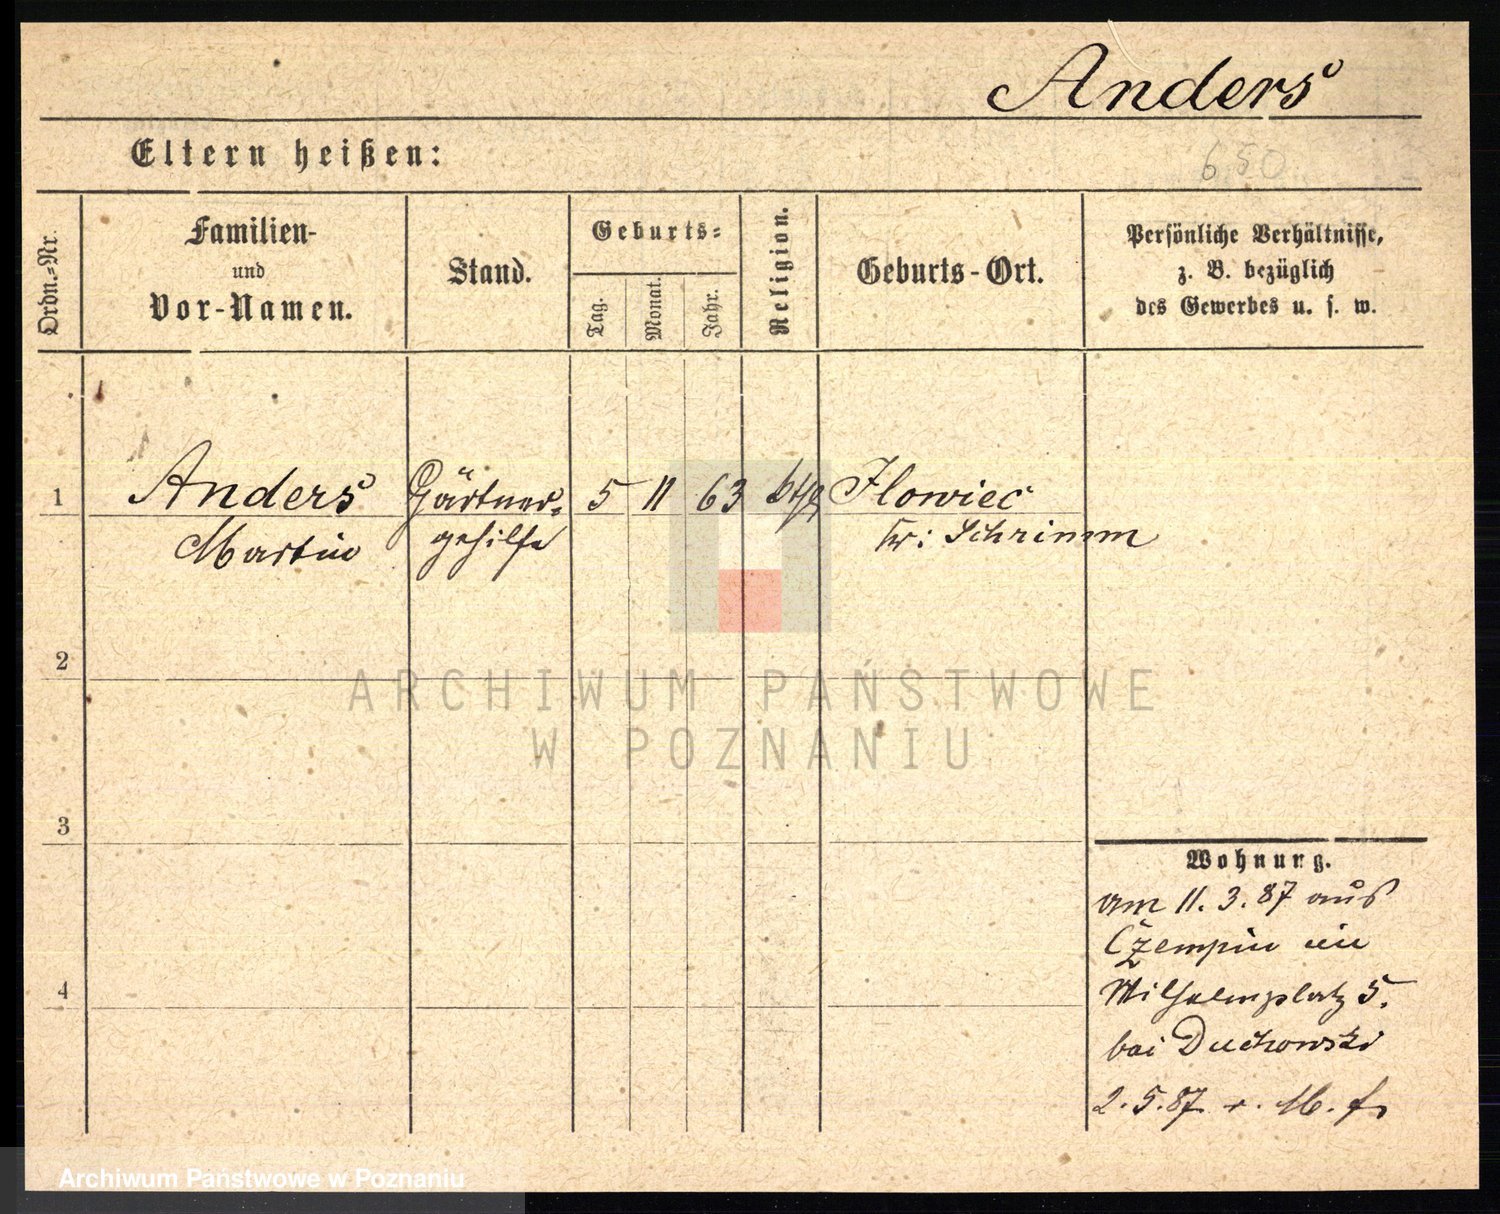 Anders
Eltern heißen:
650
Ordn.=Nr.
Familien-
und
Vor-Namen.
Stand.
Geburts=
Tag.
Monat.
Jahr.
Religion.
Geburts-Ort.
Persönliche Verhältnisse,
z. B. bezüglich
des Gewerbes u. s. w.
1
Anders
Martin
Gärtner=
gehilfe
5
11
63
kth
Ilowiec
Kr: Schrimm
2
3
4
Wohnung.
am 11. 3. 87 aus
Czempin in
Wilhelmplatz 5.
bei Duchowski
2. 5. 87
ARCHIWUM PAŃSTWOWE
W POZNANIU
Archiwum Państwowe w Poznaniu